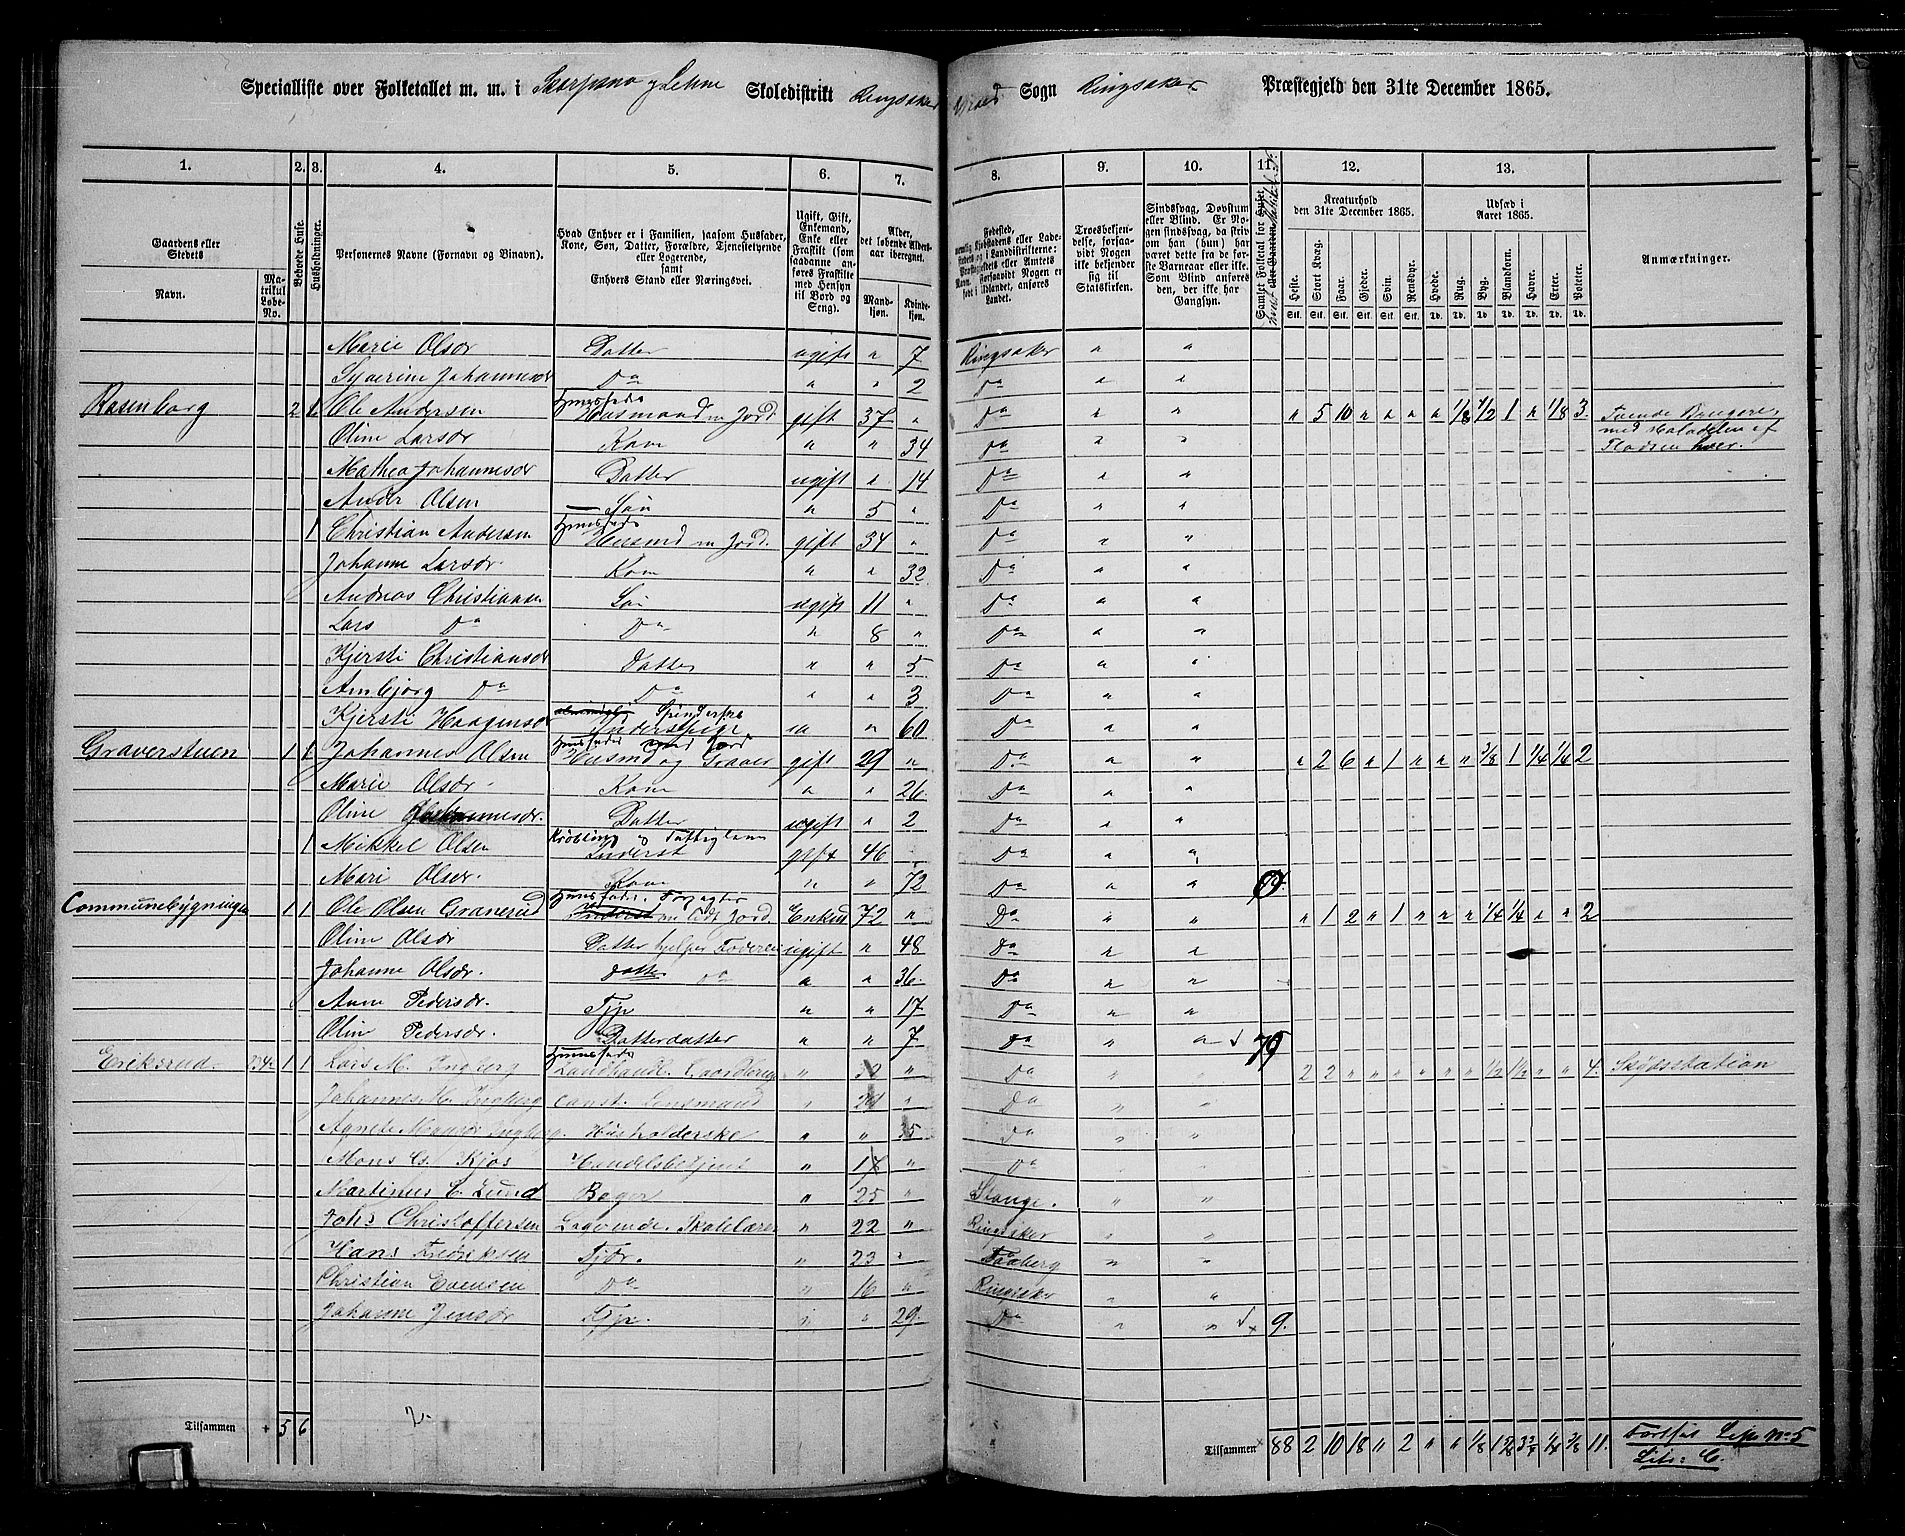 Specialliste over Folketallet m. m. i Skolediſtrikt Ringsaker Sogn Ringsaker Præstegjeld den 31te December 1865.
1. 2. 3. 4. 5. 6. 7. 8. 9. 10. 11. 12. 13.
Gaardens eller Stedets
Navn.
Matrikul Løbe-No.
Beboede Huse.
Husholdninger.
Personernes Navne (Fornavn og Binavn).
Hvad Enhver er i Familien, saasom Husfader, Kone, Søn, Datter, Forældre, Tjenestetyende eller Logerende, samt Enhvers Stand eller Næringsvei.
Ugift, Gift, Enkemand, Enke eller Fraskilt (som saadanne anføres Fraskilte med Hensyn til Bord og Seng).
Alder, det løbende Aldersaar iberegnet.
Mandkjøn. Kvindekjøn.
Troesbekjendelse, forsaavidt Nogen ikke bekjender sig til Statskirken.
Sindssvag, Døvstum eller Blind. Er Nogen sindssvag, da skrives om han (hun) har været dette fra de første Barneaar eller ikke. Som Blind anføres den, der ikke har Gangsyn.
Kreaturhold den 31te December 1865.
Heste. Stort Kvæg. Faar. Gjeder. Svin. Rensdyr.
Udsæd i Aaret 1865.
Hvede. Rug. Byg. Blandkorn. Havre. Erter. Poteter.
Anmærkninger.
Marie Olsdr Datter ugift " 7 Ringsaker " "
Syverine Johannesdr Do " " 2 Do " "
Rosenborg 2 1 Ole Andersen Huusfader Husmand m Jord. gift 37 " Do " " " 5 10 " " " " 1/8 1/2 1 " 1/8 3
Oline Larsdr Kone " " 34 Do " "
Mathea Johannesdr Datter ugift " 14 Do " "
Ander Olsen Søn " 5 " Do " "
1 Christian Andersen Huusfader Husmd m Jord. gift 34 " Do " "
Johanne Larsdr. Kone " " 32 Do " "
Andreas Christiansen Søn ugift 11 " Do " "
Lars Do Do " 8 " Do " "
Kjersti Christiansdr Datter " " 5 Do " "
Anbjørg Do Do " " 3 Do " "
Kjersti Haagensdr " " 60 Do " "
Graverstuen 1 1 Johannes Olsen Huusfader med Jord Husmd og Graver gift 29 " Do " " " 2 6 " 1 " " " 3/8 1 1/4 1/6 2
Marie Olsdr. Kone " " 26 Do " "
Oline Johannesdr. Datter ugift " 2 Do " "
1 Mikkel Olsen Krøbling og Fattiglem Inderst gift 46 " Do " "
Mari Olsdr. Kone " " 72 Do " "
Communebygningen 1 1 Ole Olsen Granerud Huusfader. Forpagter Enkmd 72 " Do " " " 1 2 " 1 " " " 1/4 1/4 " " 2
Oline Olsdr Datter hjelper Faderen ugift " 48 Do " "
Johanne Olsdr. Datter Do " " 36 Do " "
Anne Pedersdr. Tjp " " 17 Do " "
Oline Pedersdr. Datterdatter " " 7 Do " " 79
Eriksrud. 1 1 Lars M. Ingberg Huusfader Landhandl. Gaardbruger " " Do " " 2 2 " " " " " " 1/2 1 1/2 " " 4. Skydsstation
Johannes M. Ingberg const. Lensmand " " Do " "
Agnete Ingberg. Husholderske " " 35 Do " "
Mons Kjos Handelsbetjent " 17 " Do " "
Martinus C. Lund Bager " 25 " Stange. " "
Johs Christoffersen Logerende. Skolelærer " 22 " Ringsaker " "
Hans Fredriksen Tjdr. " 23 " Faaberg " "
Christian Evensen Do " 16 " Ringsaker " "
Johanne Jensdr Tjp. " " 29. Do " " 9.
Tilsammen 5 6
Tilsammen 88 2 10 18 " 2 " " 1/8 11.
Litr: C.